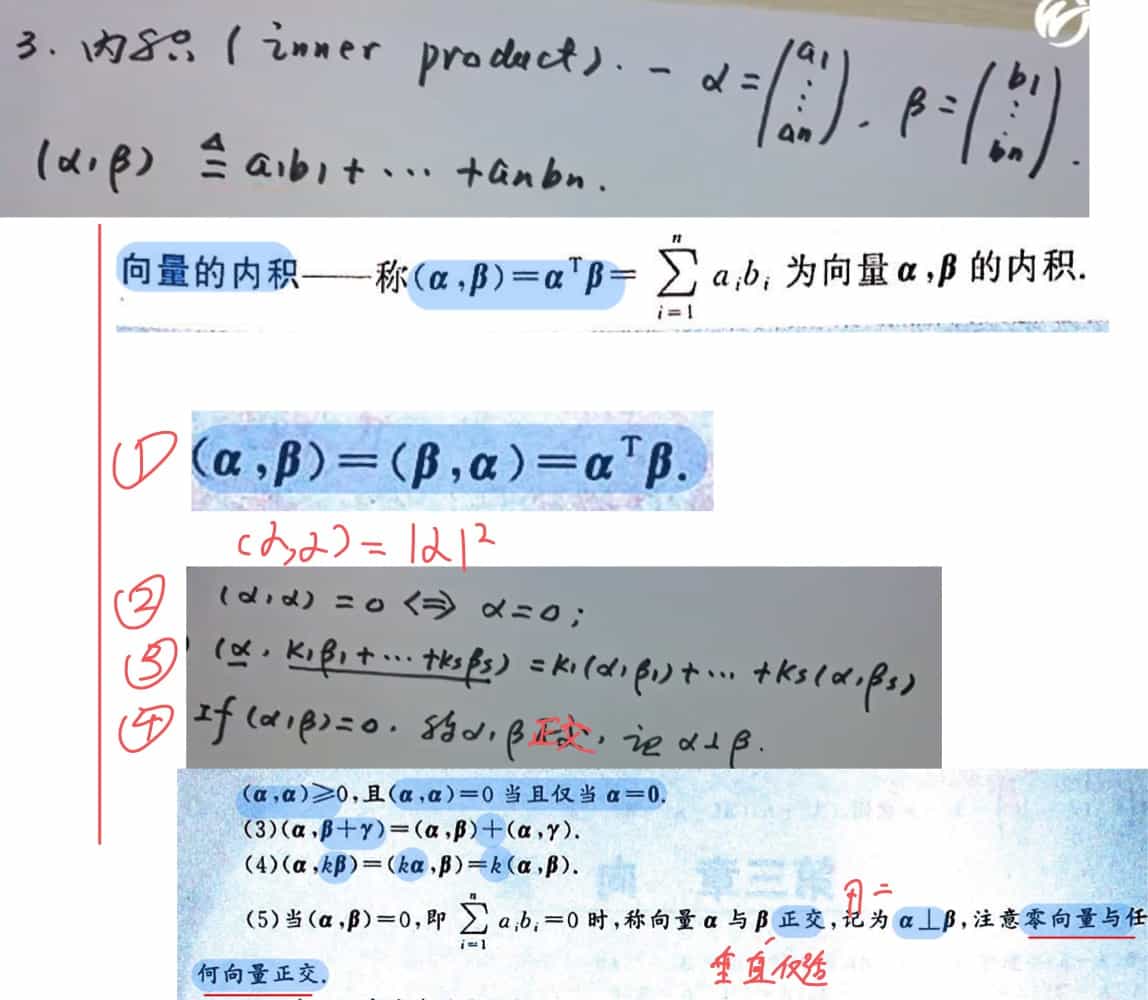 3. 内积 (inner product). - α = (a1 ⋮ an). β = (b1 ⋮ bn).
(α,β) ≜ a1b1 + ⋯ + anbn.
向量的内积——称(α,β)=α^Tβ=∑_{i=1}^{n} a_i b_i 为向量α,β的内积.
① (α,β)=(β,α)=α^Tβ.
(α,α)=|α|²
② (α,α)=0 <=> α=0;
③ (α, k1β1+⋯+ksβs)=k1(α,β1)+⋯+ks(α,βs)
④ If (α,β)=0. 称α,β正交, 记α⊥β.
(α,α)≥0,且(α,α)=0当且仅当α=0.
(3)(α,β+γ)=(α,β)+(α,γ).
(4)(α,kβ)=(kα,β)=k(α,β).
第三章 向
(5)当(α,β)=0,即∑_{i=1}^{n} a_i b_i=0时,称向量α与β正交,记为α⊥β,注意零向量与任
垂直
何向量正交.